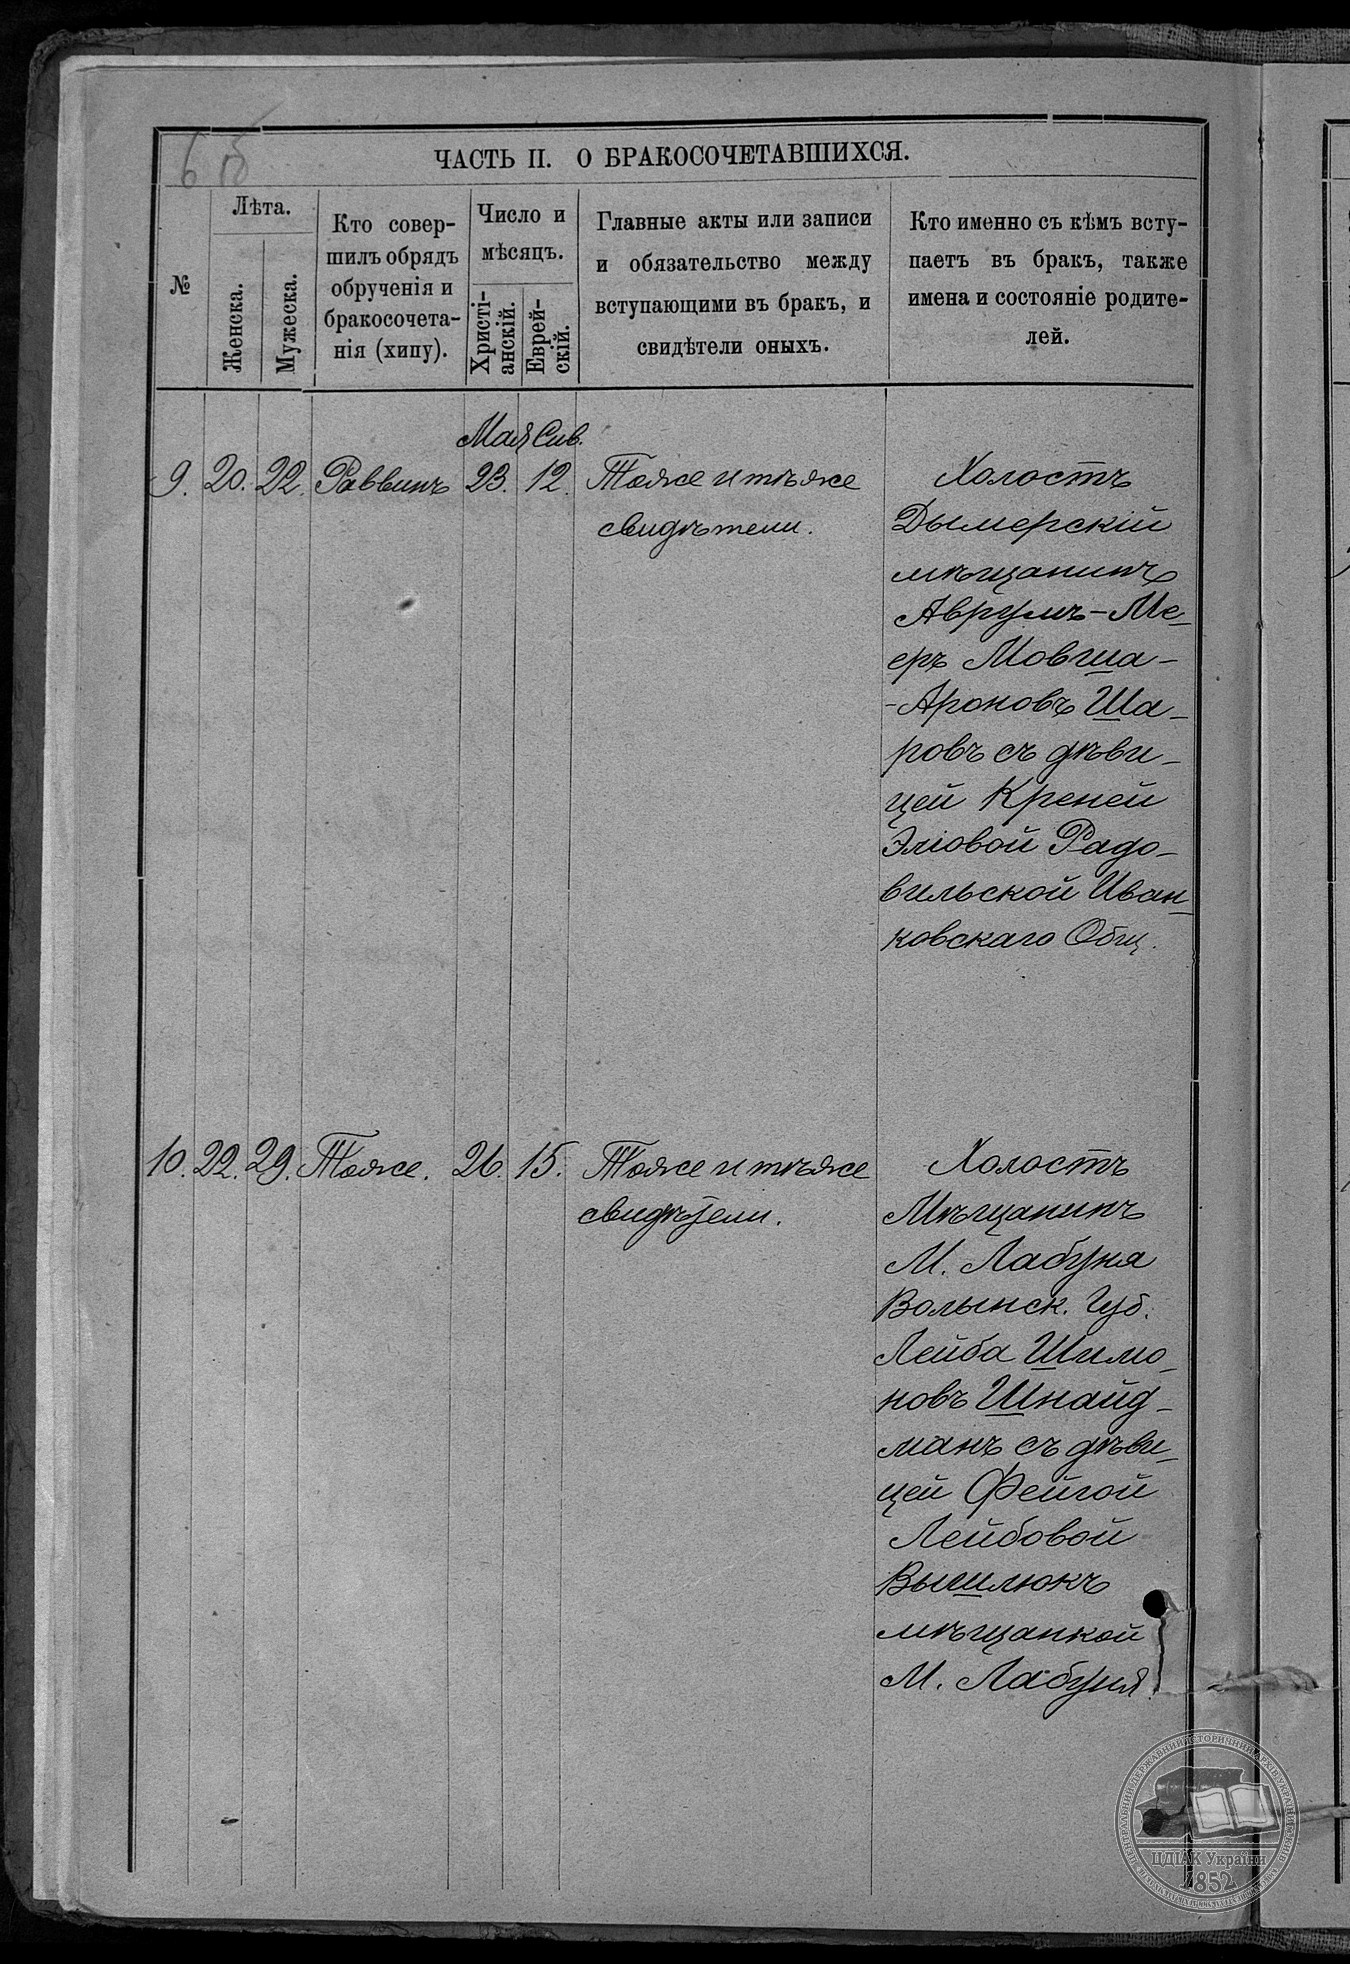 6 об
ЧАСТЬ II. О БРАКОСОЧЕТАВШИХСЯ.
№
Лѣта.
Женска.
Мужеска.
Кто совер-
шилъ обрядъ
обрученія и
бракосочета-
нія (хипу).
Число и
мѣсяцъ.
Христі-
анскій.
Еврей-
скій.
Главные акты или записи
и обязательство между
вступающими въ бракъ, и
свидѣтели оныхъ.
Кто именно съ кѣмъ всту-
паетъ въ бракъ, также
имена и состояніе родите-
лей.
Мая Сив.
9. 20. 22. Раввинъ 23. 12. Тоже и тѣже
свидѣтели.
Холостъ
Дымерскій
мѣщанинъ
Аврумъ-Ме-
еръ Мовша-
-Ароновъ Ша-
ровъ съ дѣви-
цей Креней
Эліовой Радо-
вильской Иван-
ковскаго Общ.
10. 22. 29. Тоже. 26. 15. Тоже и тѣже
свидѣтели.
Холостъ
Мѣщанинъ
М. Лабуня
Волынск. Губ.
Лейба Шимо-
новъ Шнайд-
манъ съ дѣви-
цей Фейгой
Лейбовой
Вышлюкъ
мѣщанкой
М. Лабуня.
ЦДІАК України
1852